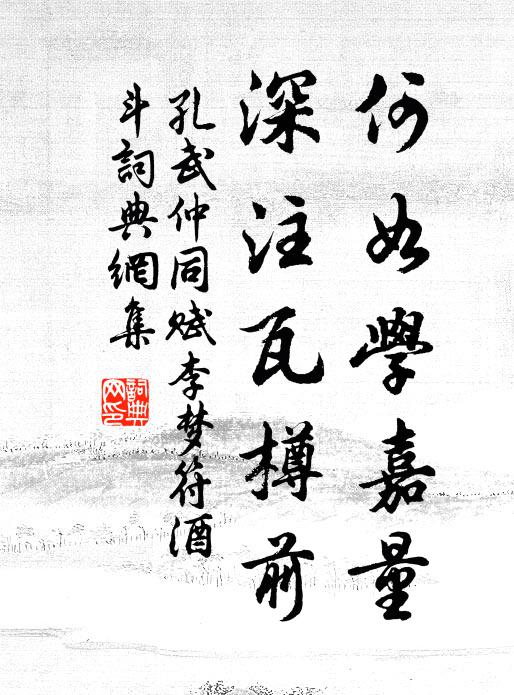 何如學嘉量
深注瓦樽前
孔武仲同赋李梦符酒
斗詞典網集
詞典
网印